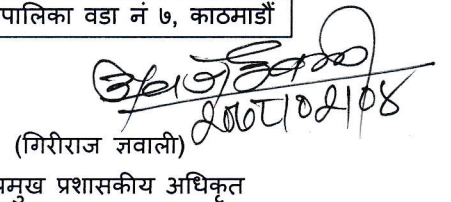 पालिका वडा नं ७, काठमाडौं
२०७८।०२।०४
(गिरीराज ज्ञवाली)
प्रमुख प्रशासकीय अधिकृत